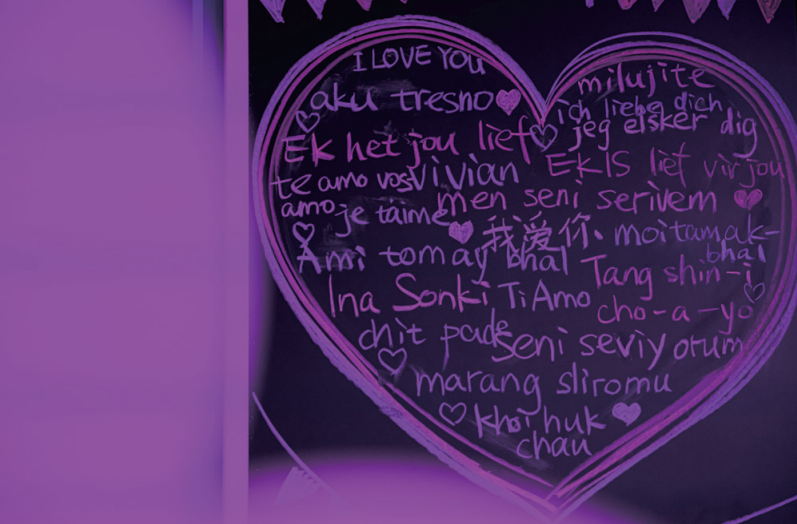 I LOVE YOU
milujite
aku tresno
ich liebe dich
jeg elsker dig
Ek het jou lief
EkIS lief vir jou
te amo vos
vivian
men seni serivem
amo
je taime
我爱你
moi tamak-
bhal
Ami tomay bhal
Tang shin-i
Ina Sonki
Ti Amo
cho-a-yo
chit pade
seni seviyorum
marang sliromu
khoi huk
chau